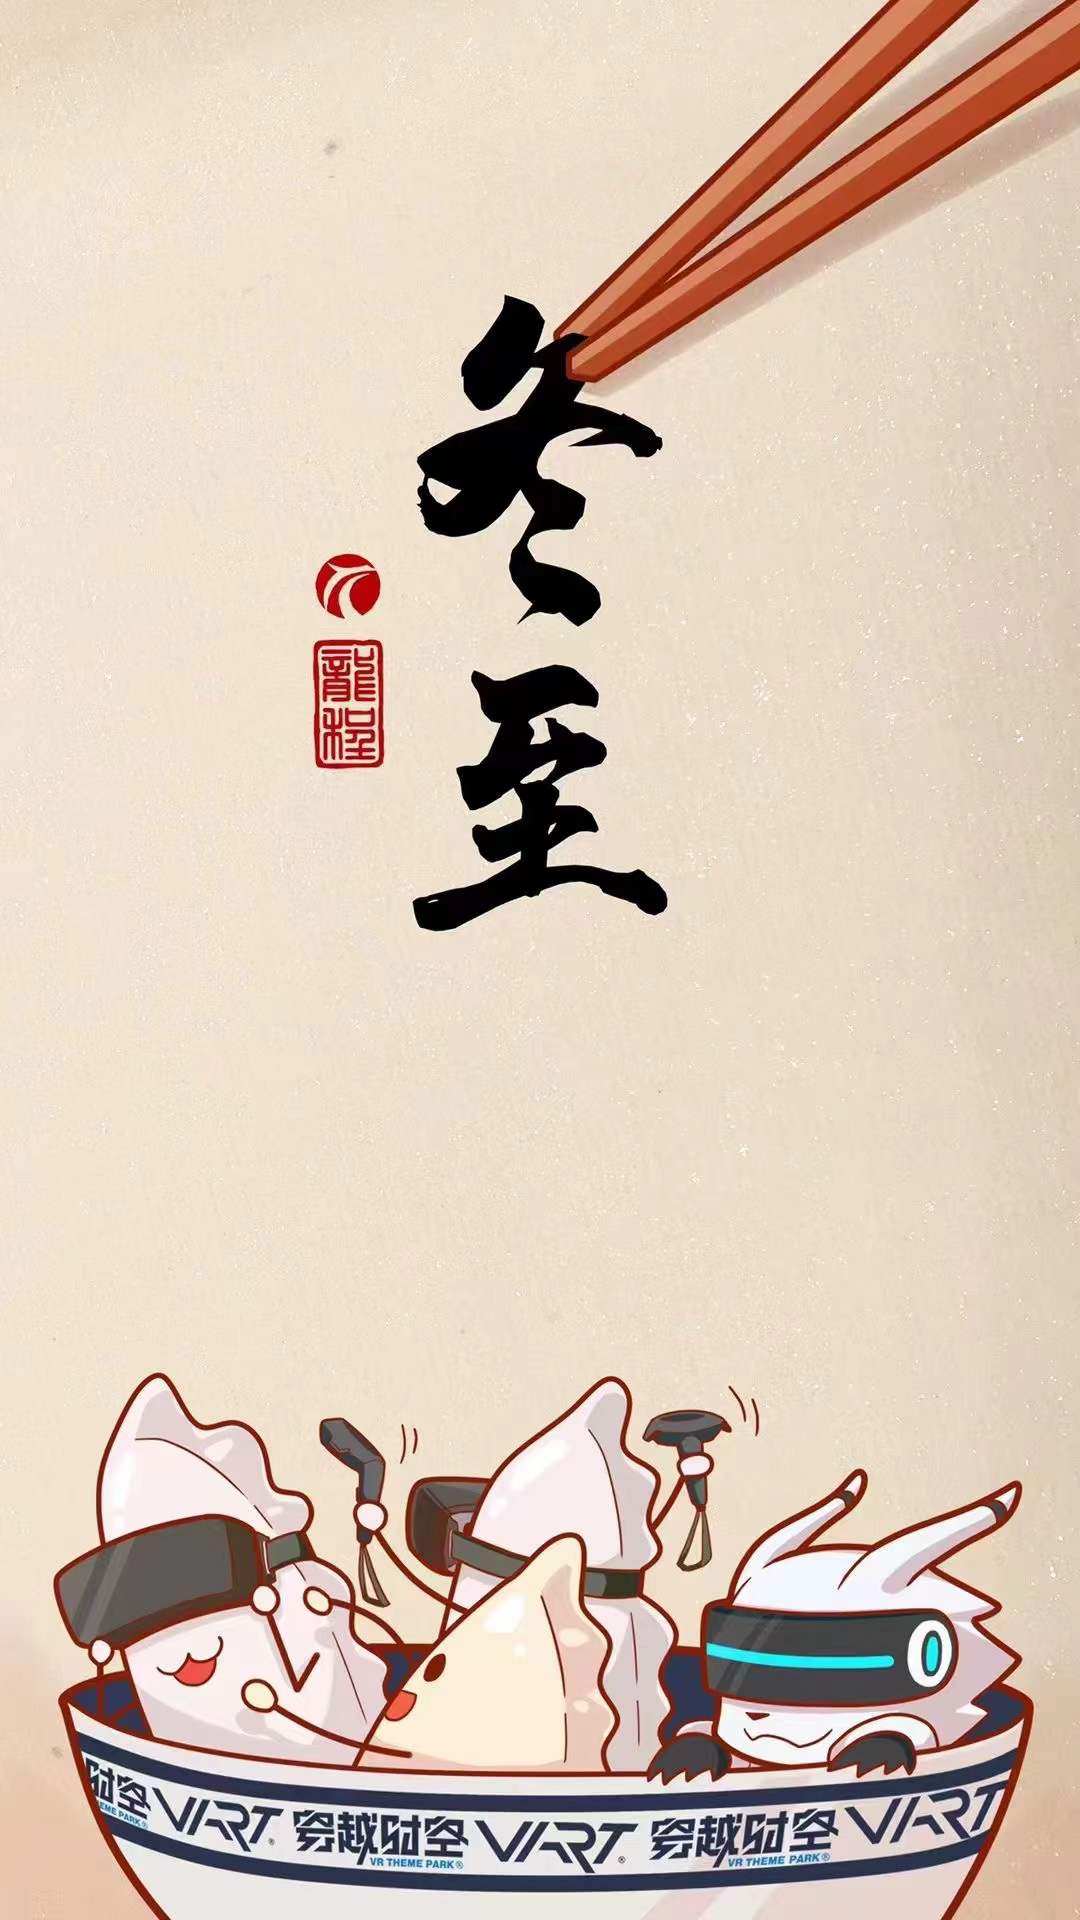 冬至
龍程
时空 VART® 穿越时空 VART® 穿越时空 VART
EME PARK® VR THEME PARK® VR THEME PARK®